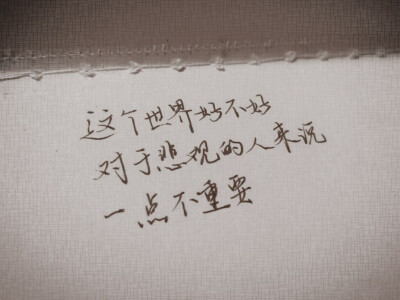 这个世界好不好
对于悲观的人来说
一点不重要